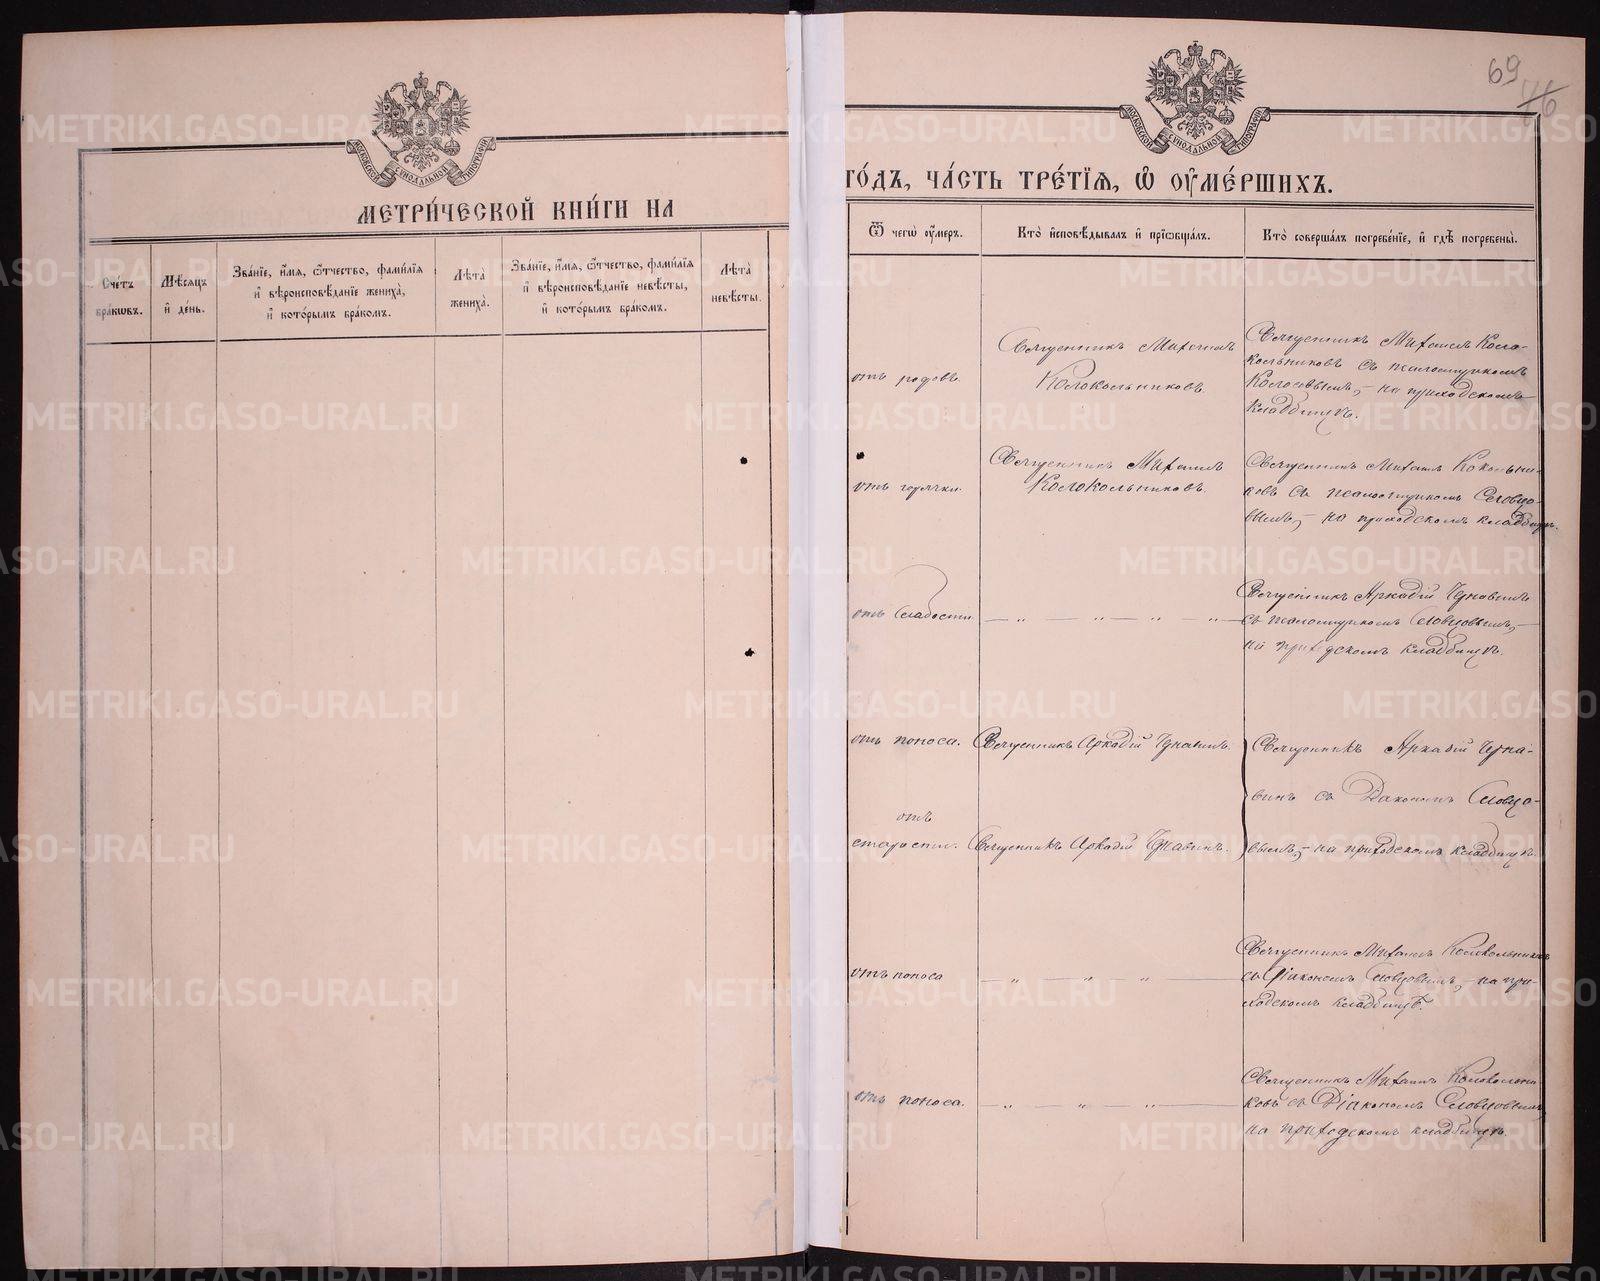 69
76
МОСКОВСКОЙ СѴНОДАЛЬНОЙ ТИПОГРАФІИ
МЕТРИ́ЧЕСКОЙ КНИ́ГИ НА
Сче́тъ бра́кѡвъ.
Мѣ́сѧцъ и҆ де́нь.
Зва́нїе, и҆́мѧ, ѻ҆́тчество, фами́лїѧ
и҆ вѣроисповѣ́данїе жениха̀,
и҆ кото́рымъ бра́комъ.
Лѣ̑та жениха̀.
Зва́нїе, и҆́мѧ, ѻ҆́тчество, фами́лїѧ
и҆ вѣроисповѣ́данїе невѣ́сты,
и҆ кото́рымъ бра́комъ.
Лѣ̑та невѣ́сты.
МОСКОВСКОЙ СѴНОДАЛЬНОЙ ТИПОГРАФІИ
ГО́ДЪ, ЧА́СТЬ ТРЕ́ТЇѦ, Ѡ҆ ОУ҆МЕ́РШИХЪ.
Ѿ чегѡ̀ оу҆́меръ.
Кто̀ и҆сповѣ́дывалъ и҆ прїѡбща́лъ.
Кто̀ соверша́лъ погребе́нїе, и҆ гдѣ̀ погребены̀.
отъ родовъ.
Священникъ Михаилъ
Колокольниковъ.
Священникъ Михаилъ Коло-
кольниковъ съ псаломщикомъ
Колосовымъ, – на приходскомъ
кладбищѣ.
отъ горячки.
Священникъ Михаилъ
Колокольниковъ.
Священникъ Михаилъ Кокольни-
ковъ съ псаломщикомъ Словцо-
вымъ, – на приходскомъ кладбищѣ.
отъ слабости
— „ — „ — „ — „ —
Священникъ Аркадій Чернавинъ
съ псаломщикомъ Словцовымъ, –
на приходскомъ кладбищѣ.
отъ поноса.
Священникъ Аркадій Чернавинъ.
Священникъ Аркадій Черна-
винъ съ Діакономъ Словцо-
вымъ, – на приходскомъ кладбищѣ.
отъ
старости.
Священникъ Аркадій Чернавинъ.
отъ поноса
— „ — „ — „ —
Священникъ Михаилъ Колокольниковъ
съ Діакономъ Словцовымъ, – на при-
ходскомъ кладбищѣ.
отъ поноса.
— „ — „ — „ —
Священникъ Михаилъ Колокольни-
ковъ съ Діакономъ Словцовымъ
на приходскомъ кладбищѣ.
METRIKI.GASO-URAL.RU